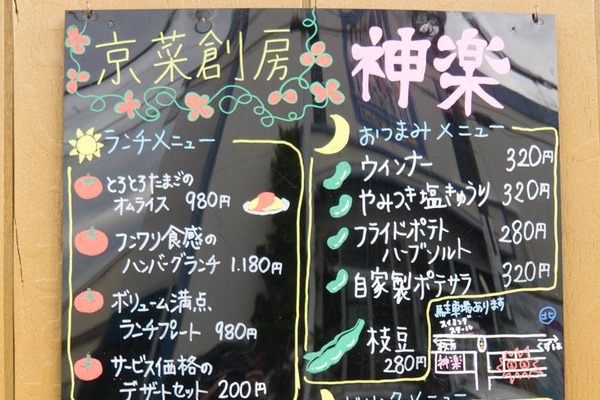 京菜創房 神楽
ランチメニュー
とろとろたまごの
オムライス 980円
フンワリ食感の
ハンバーグランチ 1.180円
ボリューム満点、
ランチプレート 980円
サービス価格の
デザートセット 200円
おつまみメニュー
ウィンナー 320円
やみつき塩きゅうり 320円
フライドポテト
ハーブソルト 280円
自家製ポテサラ 320円
枝豆
280円
駐車場あります
スイミング
スクール
北
枚方
くずは
神楽
ドリンクメニュー